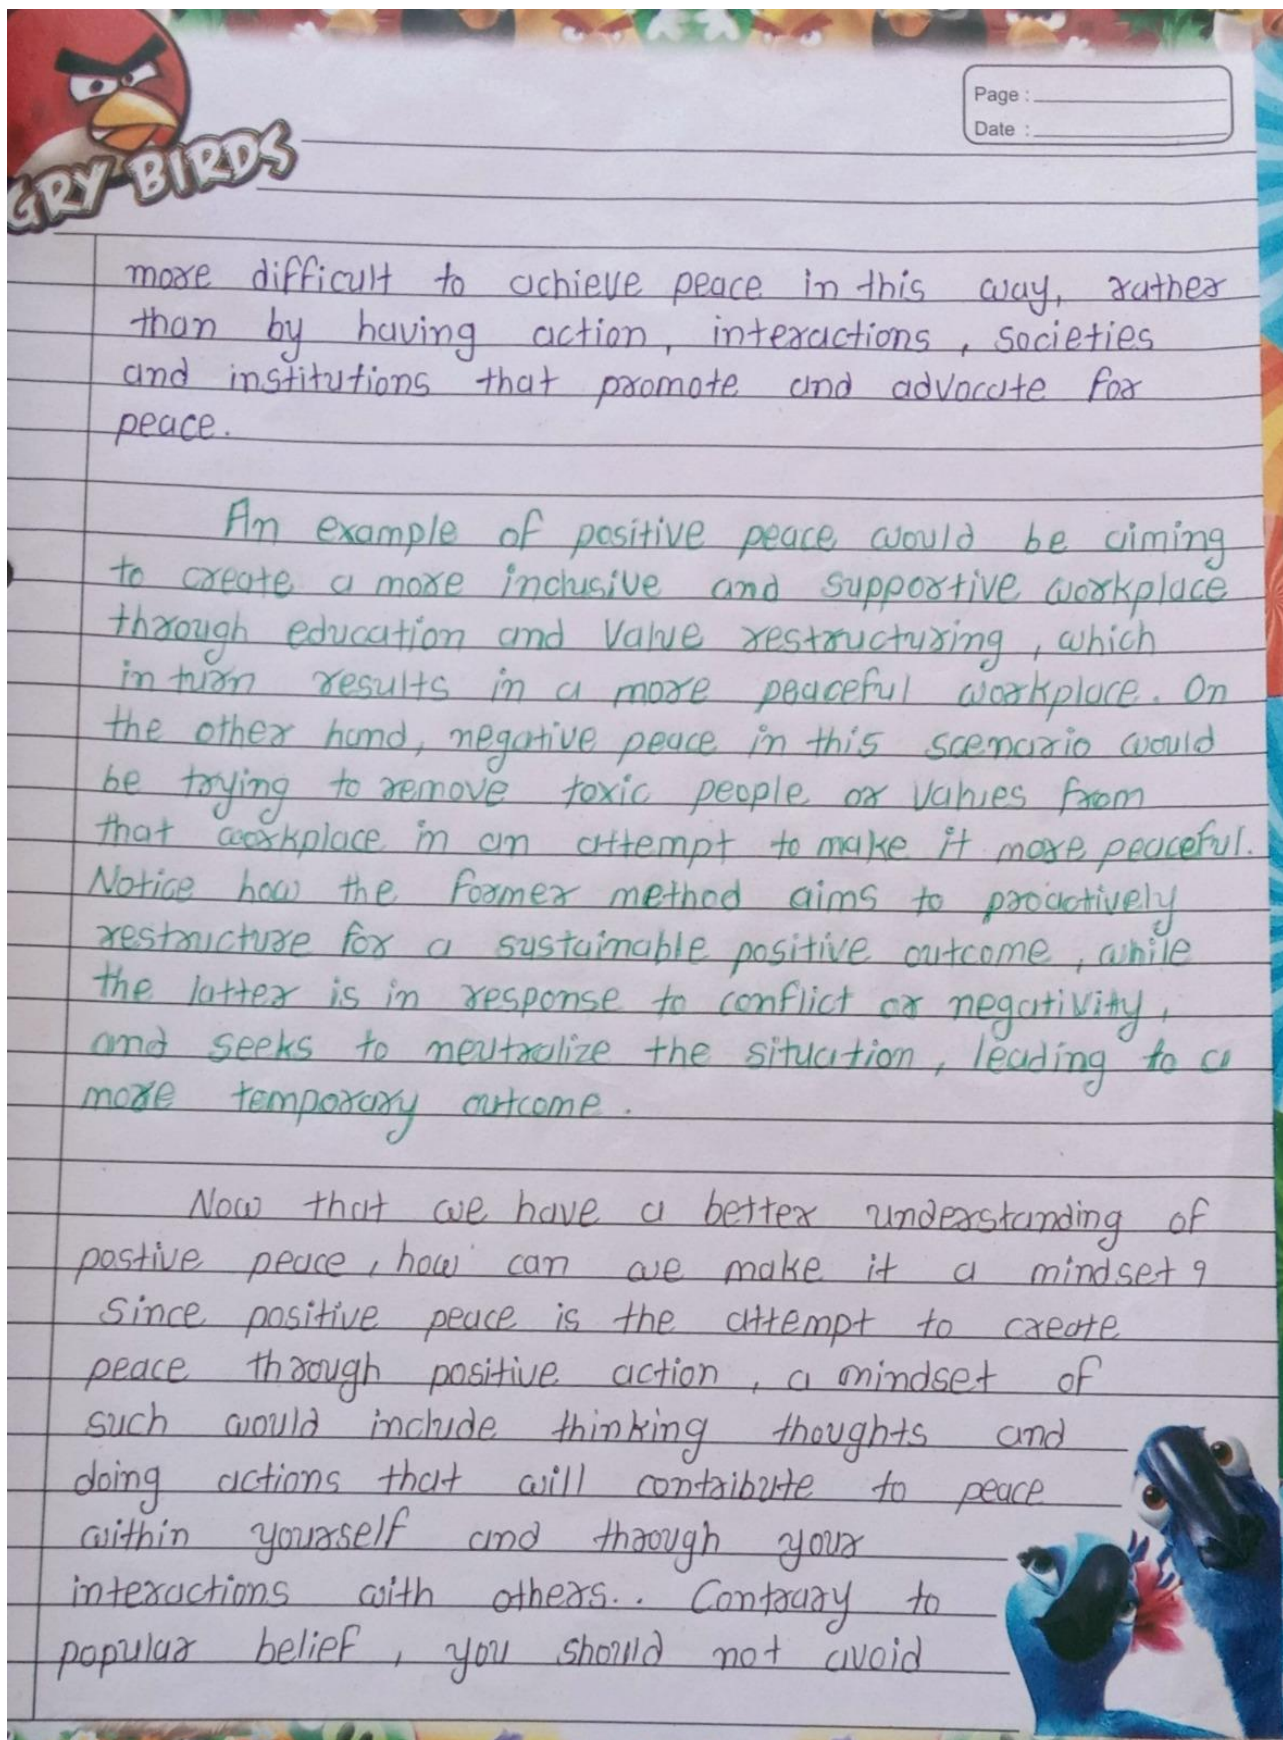 GRY BIRDS
Page :
Date :
more difficult to achieve peace in this way, rather
than by having action, interactions, societies
and institutions that promote and advocate for
peace.
An example of positive peace would be aiming
to create a more inclusive and supportive workplace
through education and value restructuring, which
in turn results in a more peaceful workplace. On
the other hand, negative peace in this scenario would
be trying to remove toxic people or values from
that workplace in an attempt to make it more peaceful.
Notice how the former method aims to proactively
restructure for a sustainable positive outcome, while
the latter is in response to conflict or negativity,
and seeks to neutralize the situation, leading to a
more temporary outcome.
Now that we have a better understanding of
postive peace, how can we make it a mindset?
Since positive peace is the attempt to create
peace through positive action, a mindset of
such would include thinking thoughts and
doing actions that will contribute to peace
within yourself and through your
interactions with others.. Contrary to
popular belief, you should not avoid